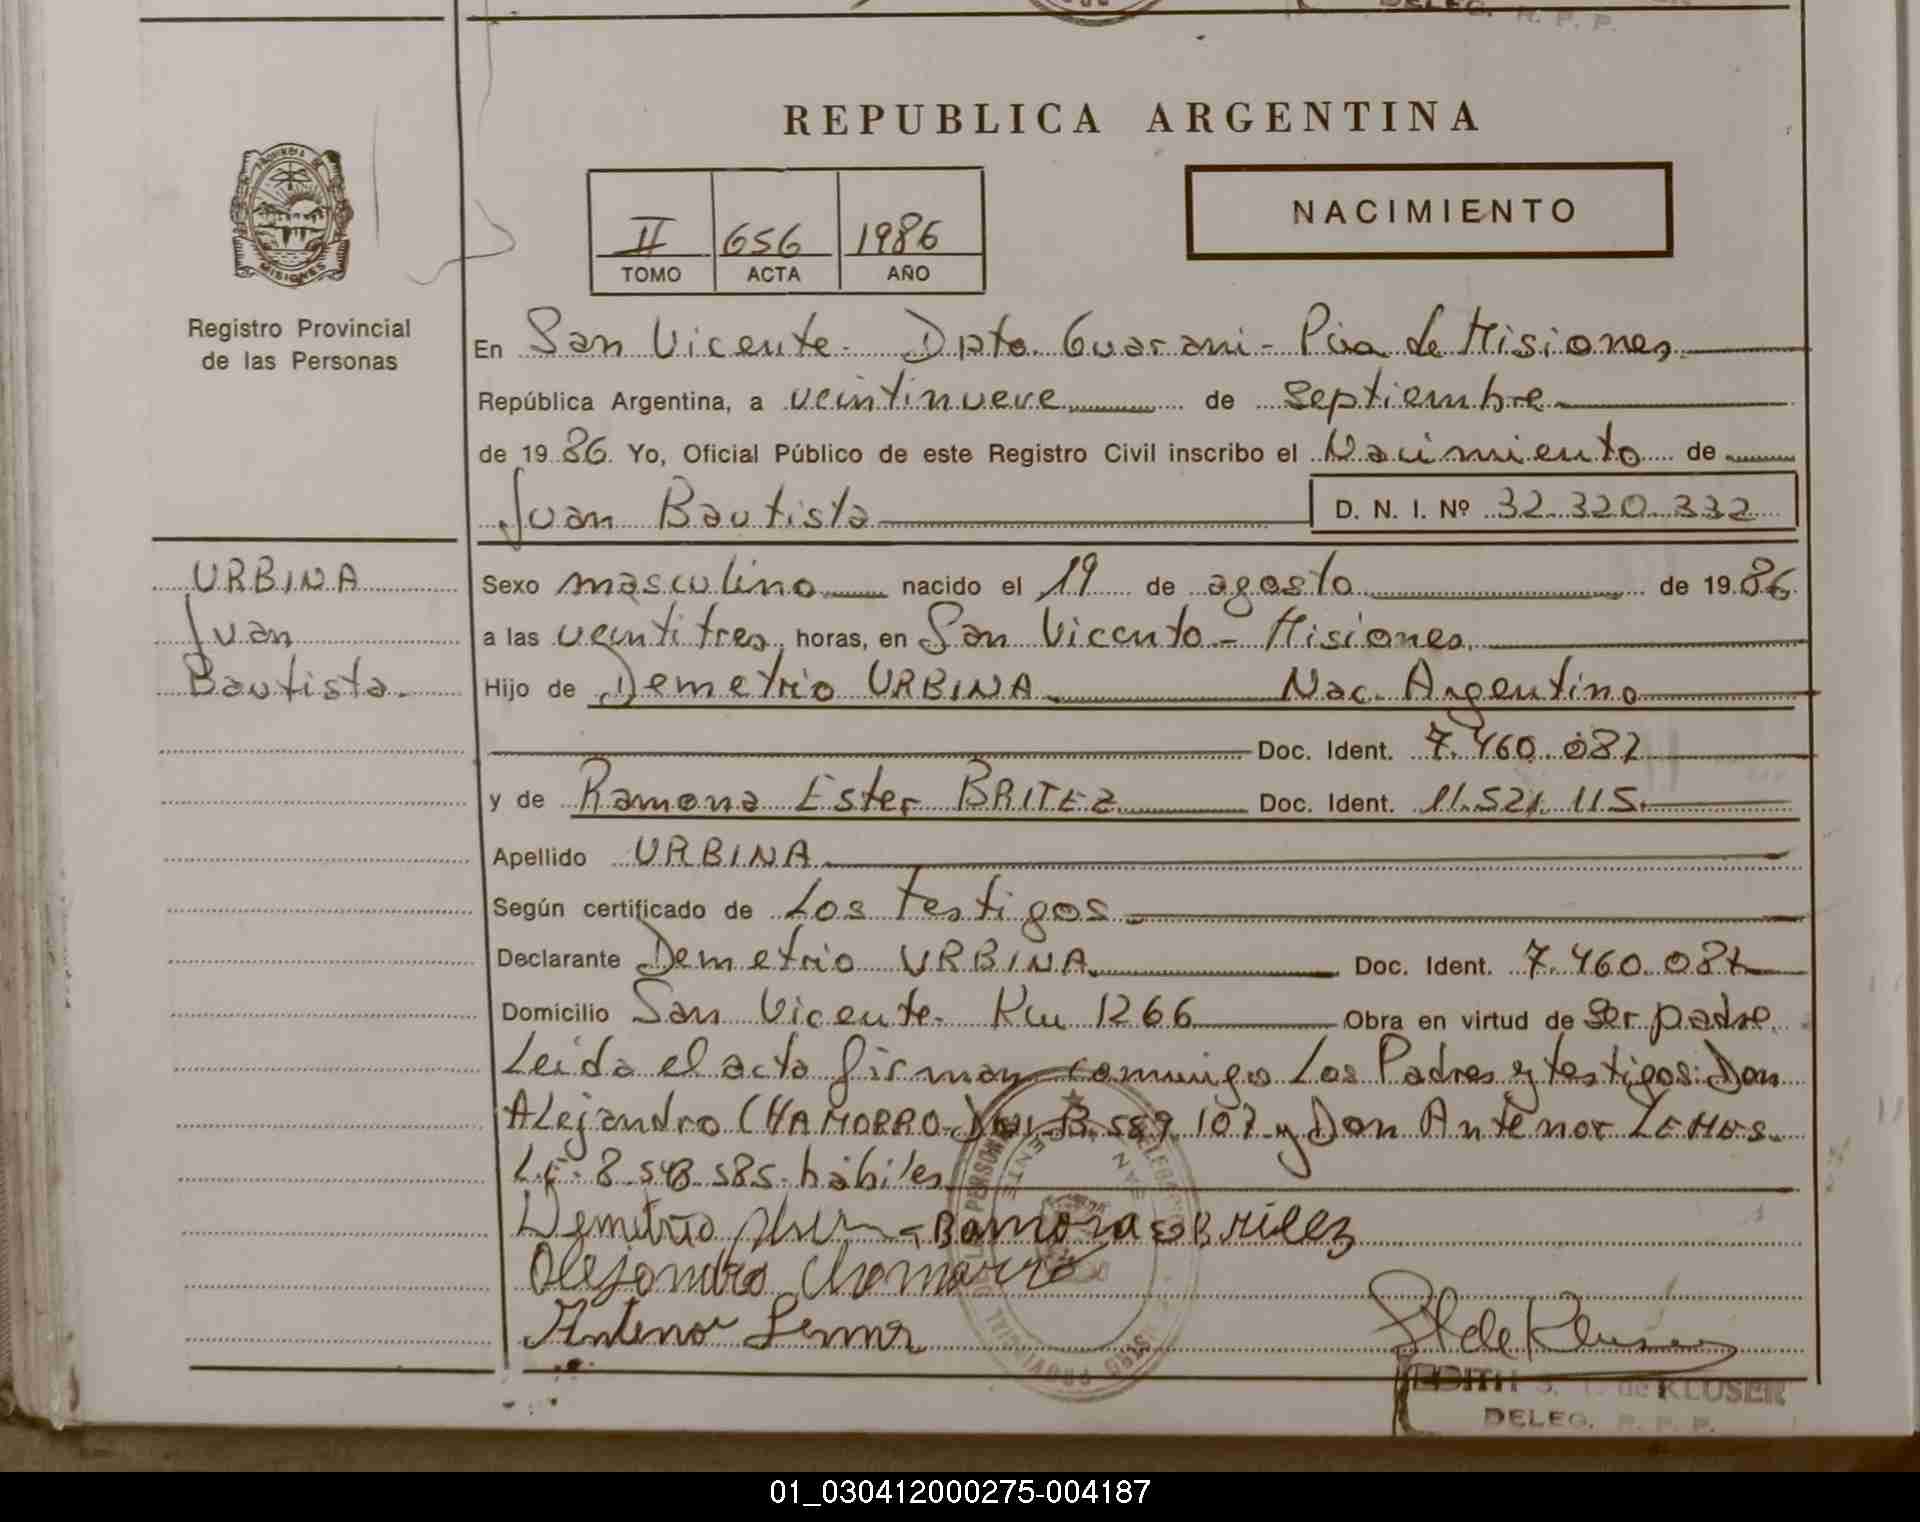 DELEG. R. P. P.
REPUBLICA ARGENTINA
PROVINCIA DE
MISIONES
Registro Provincial
de las Personas
II 656 1986
TOMO ACTA AÑO
NACIMIENTO
En San Vicente - Dpto. Guarani - Pcia de Misiones
República Argentina, a veintinueve de septiembre
de 1986. Yo, Oficial Público de este Registro Civil inscribo el Nacimiento de
Juan Bautista D. N. I. Nº 32.320.332
URBINA
Juan
Bautista.
Sexo masculino nacido el 19 de agosto de 1986
a las veintitres horas, en San Vicente - Misiones
Hijo de Demetrio URBINA Nac. Argentino
Doc. Ident. 7.460.082
y de Ramona Ester BRITEZ Doc. Ident. 11.521.115
Apellido URBINA
Según certificado de Los testigos
Declarante Demetrio URBINA Doc. Ident. 7.460.082
Domicilio San Vicente - Km 1266 Obra en virtud de ser padre
Leida el acta firman conmigo los Padres y testigos: Don
Alejandro CHAMORRO DNI 589.107 y Don Antenor LEMES.
L.E. 8.543.585 hábiles
Demetrio Ramona E Britez
Alejandro Chamorro
Antenor
EDITH S. de KLUSER
DELEG. R. P. P.
01_030412000275-004187